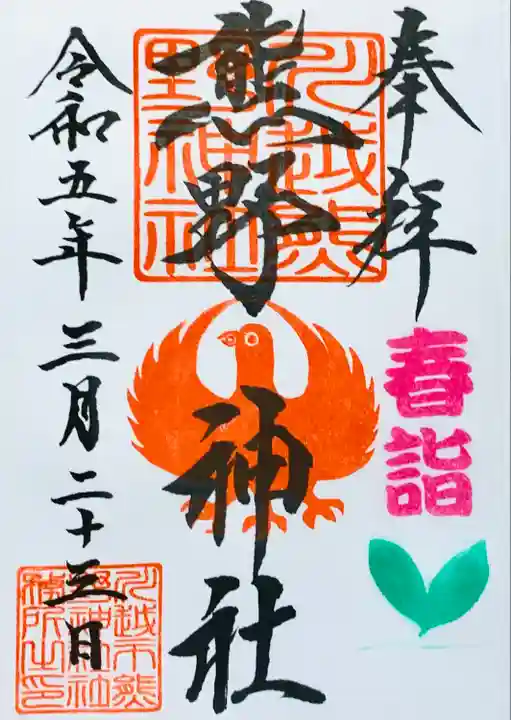 奉拝
春詣
熊野神社
川越熊
野神社
令和五年三月二十三日
川越市熊
野神社社
務所之印